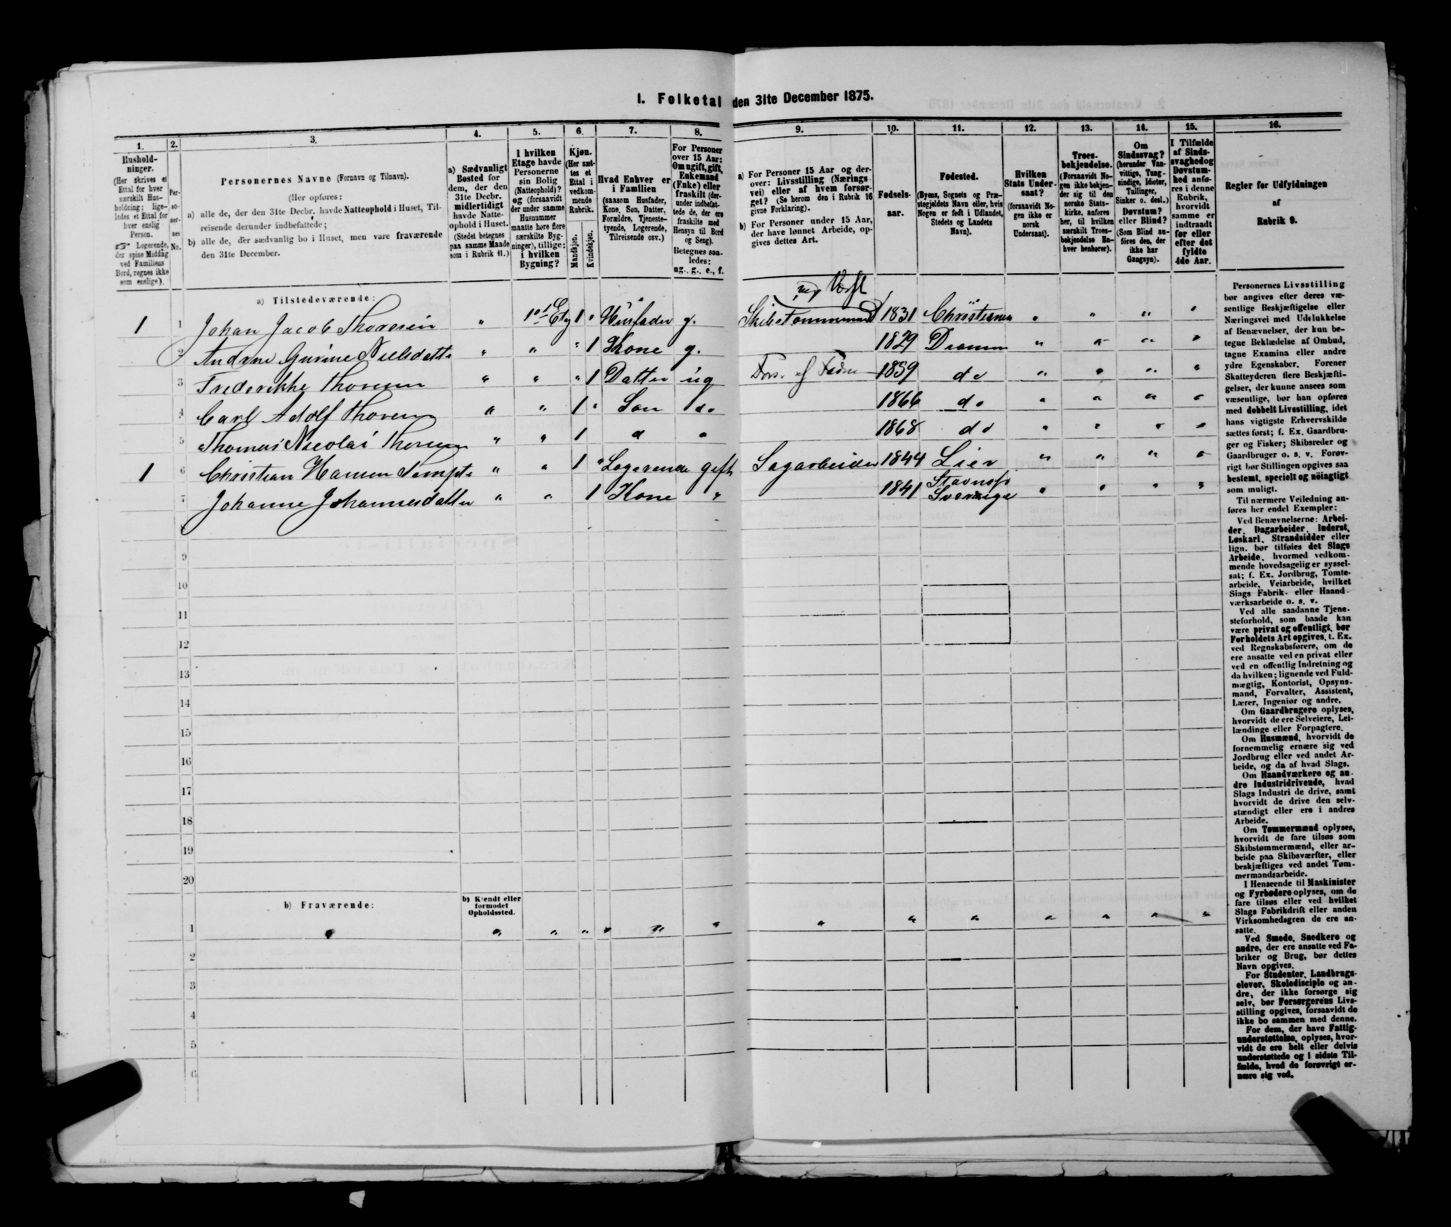 I. Folketal den 31te December 1875.
1. 2. 3. 4. 5. 6. 7. 8. 9. 10. 11. 12. 13. 14. 15. 16.
Hushold-
ninger.
(Her skrives et
Ettal for hver
særskilt Hus-
holdning; lige-
ledes et Ettal for
hver enslig
Person.
☞ Logerende,
der spise Middag
ved Familiens
Bord, regnes ikke
som enslige).
Per-
so-
ner-
nes
No.
Personernes Navne (Fornavn og Tilnavn).
(Her opføres:
a) alle de, der den 31te Decbr. havde Natteophold i Huset, Til-
reisende derunder indbefattede;
b) alle de, der sædvanlig bo i Huset, men vare fraværende
den 31te December.
a) Sædvanligt
Bosted for
dem, der den
31te Decbr.
midlertidigt
havde Natte-
ophold i Huset.
(Stedet betegnes
paa samme Maade
som i Rubrik 11.)
I hvilken
Etage havde
Personerne
sin Bolig
(Natteophold)?
og (forsaavidt
der under samme
Husnummer
maatte høre flere
særskilte Byg-
ninger), tillige:
i hvilken
Bygning?
Kjøn.
(Her sæt-
tes et
Ettal i
vedkom-
mende
Rubrik.
Mandkjøn.
Kvindekjøn.
Hvad Enhver er
i Familien
(saasom Husfader,
Kone, Søn, Datter,
Forældre, Tjeneste-
tyende, Logerende,
Tilreisende osv.)
For Personer
over 15 Aar:
Om ugift, gift,
Enkemand
(Enke) eller
fraskilt (der-
under indbefat-
tede de, der ere
fraskilte med
Hensyn til Bord
og Seng).
Betegnes saa-
ledes:
ug., g., e., f.
a) For Personer 15 Aar og der-
over: Livsstilling (Nærings-
vei) eller af hvem forsør-
get? (Se herom den i Rubrik 16
givne Forklaring).
b) For Personer under 15 Aar,
der have lønnet Arbeide, op-
gives dettes Art.
Fødsels-
aar.
Fødested.
(Byens, Sognets og Præ-
stegjeldets Navn eller, hvis
Nogen er født i Udlandet,
Stedets og Landets
Navn).
Hvilken
Stats Under-
saat?
(forsaavidt No-
gen ikke er
norsk
Undersaat).
Troes-
bekjendelse.
(Forsaavidt No-
gen ikke bekjen-
der sig til den
norske Stats-
kirke, anføres
her, til hvilken
særskilt Troes-
bekjendelse En-
hver henhører).
Om
Sindssvag?
(herunder Van-
vittige, Tung-
sindige, Idioter,
Tullinger,
Sinker o. desl.)
Døvstum?
eller Blind?
(Som Blind an-
føres den, der
ikke har
Gangsyn).
I Tilfælde
af Sinds-
svaghed og
Døvstum-
hed anfø-
res i denne
Rubrik,
hvorvidt
samme er
indtraadt
før eller
efter det
fyldte
4de Aar.
Regler for Udfyldningen
af
Rubrik 9.
a) Tilstedeværende:
1 1 Johan Jacob Thoresen " 1ste Etg 1 " Husfader g. Skibstømmermand 1831 Christiania " " " "
2 Andrine Gurine Nielsdatter " " " 1 Kone g. 1829 Drammen " " " "
3 Frederikke Thoresen " " " 1 Datter ug Fors. af Fader 1859 do " " " "
4 Carl Adolf Thoresen " " 1 " Søn do 1866 do " " " "
5 Thomas Nicolai Thoresen " " 1 d " 1868 do " " " "
1 6 Christian Hansen " " 1 " Logerende gift Sagarbeider 1844 Lier " " " "
7 Johanne Johannesdatter " " 1 Kone " 1841 Sverrige " " " "
9
10
11
12
13
14
15
16
17
18
19
20
b) Fraværende:
b) Kjendt eller
formodet
Opholdssted.
1 " " " " " " " " " " " " " "
2
3
4
5
6
Personernes Livsstilling
bør angives efter deres væ-
sentlige Beskjæftigelse eller
Næringsvei med Udelukkelse
af Benævnelser, der kun be-
tegne Beklædelse af Ombud,
tagne Examina eller andre
ydre Egenskaber. Forener
Skatteyderen flere Beskjæfti-
gelser, der kunne ansees som
væsentlige, bør han opføres
med dobbelt Livsstilling, idet
hans vigtigste Erhvervskilde
sættes først; f. Ex. Gaardbru-
ger og Fisker; Skibsreder og
Gaardbruger o. s. v. Forøv-
rigt bør Stillingen opgives saa
bestemt, specielt og nøiagtigt
som muligt.
Til nærmere Veiledning an-
føres her endel Exempler:
Ved Benævnelserne: Arbei-
der, Dagarbeider, Inderst,
Løskarl, Strandsidder eller
lign. bør tilføies det Slags
Arbeide, hvormed vedkom-
mende hovedsagelig er syssel-
sat; f. Ex. Jordbrug, Tomte-
arbeide, Veiarbeide, hvilket
Slags Fabrik- eller Haand-
værksarbeide o. s. v.
Ved alle saadanne Tjene-
steforhold, som baade kan
være privat og offentligt, bør
Forholdets Art opgives, t. Ex.
ved Regnskabsførere, om de
ere ansatte ved en privat eller
ved en offentlig Indretning og
da hvilken; lignende ved Fuld-
mægtig, Kontorist, Opsyns-
mand, Forvalter, Assistent,
Lærer, Ingeniør og andre.
Om Gaardbrugere oplyses,
hvorvidt de ere Selveiere, Lei-
lændinge eller Forpagtere.
Om Husmænd, hvorvidt de
fornemmelig ernære sig ved
Jordbrug eller ved andet Ar-
beide, og da af hvad Slags.
Om Haandværkere og an-
dre Industridrivende, hvad
Slags Industri de drive, samt
hvorvidt de drive den selv-
stændigt eller ere i andres
Arbeide.
Om Tømmermænd oplyses,
hvorvidt de fare tilsøs som
Skibstømmermænd, eller ar-
beide paa Skibsværfter, eller
beskjæftiges ved andet Tøm-
mermandsarbeide.
I Henseende til Maskinister
og Fyrbødere oplyses, om de
fare tilsøs eller ved hvilket
Slags Fabrikdrift eller anden
Virksomhedsgren de ere an-
satte.
Ved Smede, Snedkere og
andre, der ere ansatte ved Fa-
briker og Brug, bør dettes
Navn opgives.
For Studenter, Landbrugs-
elever, Skoledisciple og an-
dre, der ikke forsørge sig
selv, bør Forsørgerens Livs-
stilling opgives, forsaavidt de
ikke bo sammen med denne.
For dem, der have Fattig-
understøttelse, oplyses, hvor-
vidt de ere helt eller delvis
understøttede og i sidste Til-
fælde, hvad de forøvrigt er-
nære sig ved.